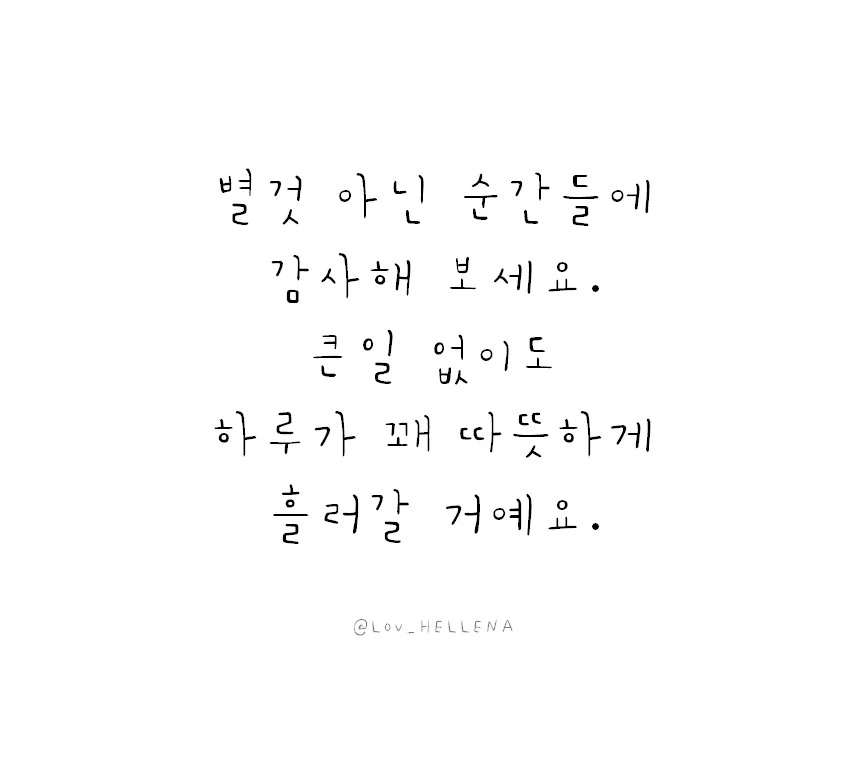 별것 아닌 순간들에
감사해 보세요.
큰일 없이도
하루가 꽤 따뜻하게
흘러갈 거예요.
@LOV_HELLENA